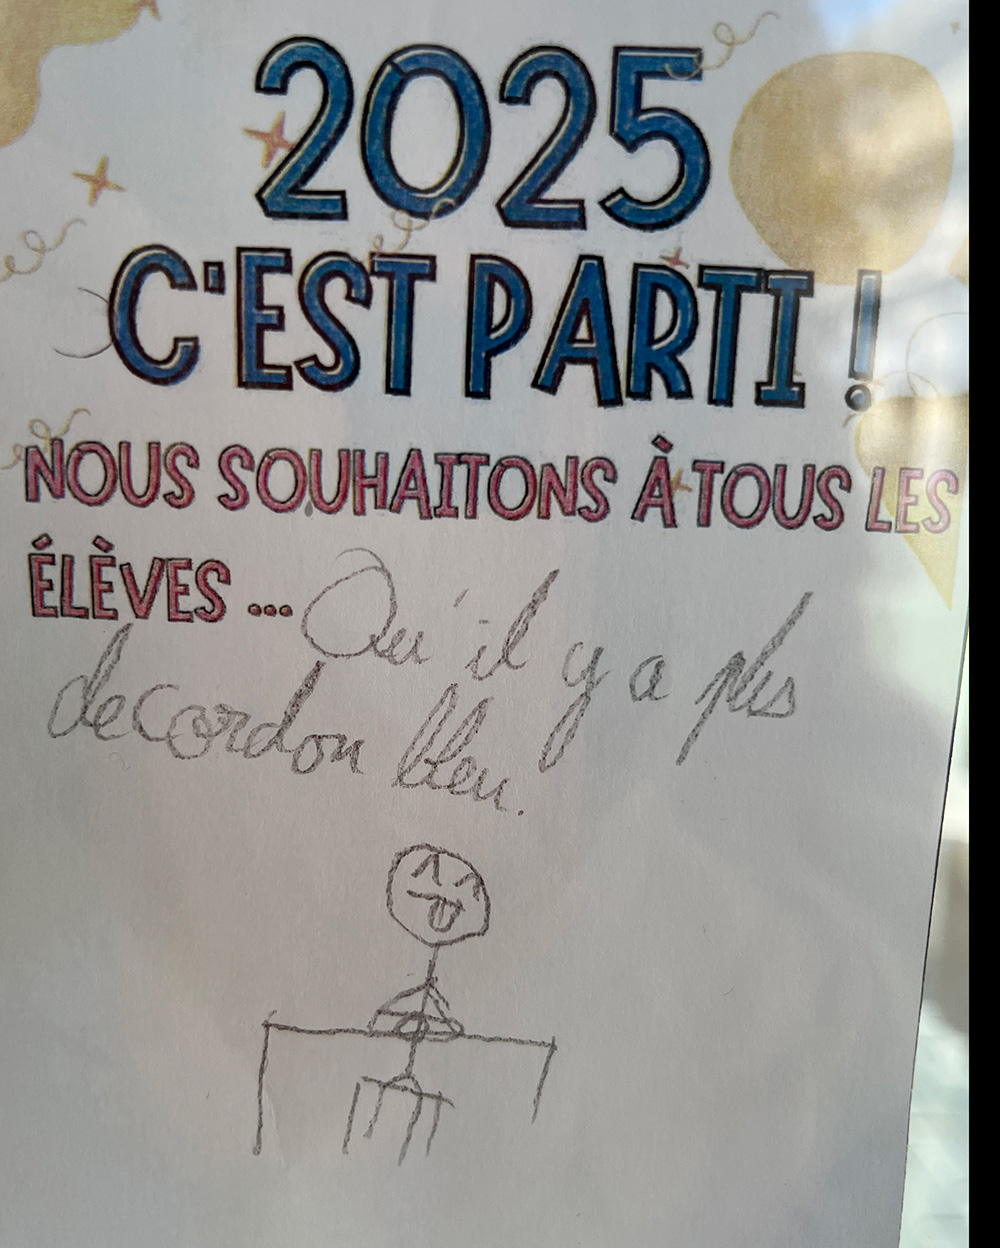 2025
C'EST PARTI !
NOUS SOUHAITONS À TOUS LES
ÉLÈVES ... Qu'il y a plus
de cordon bleu.